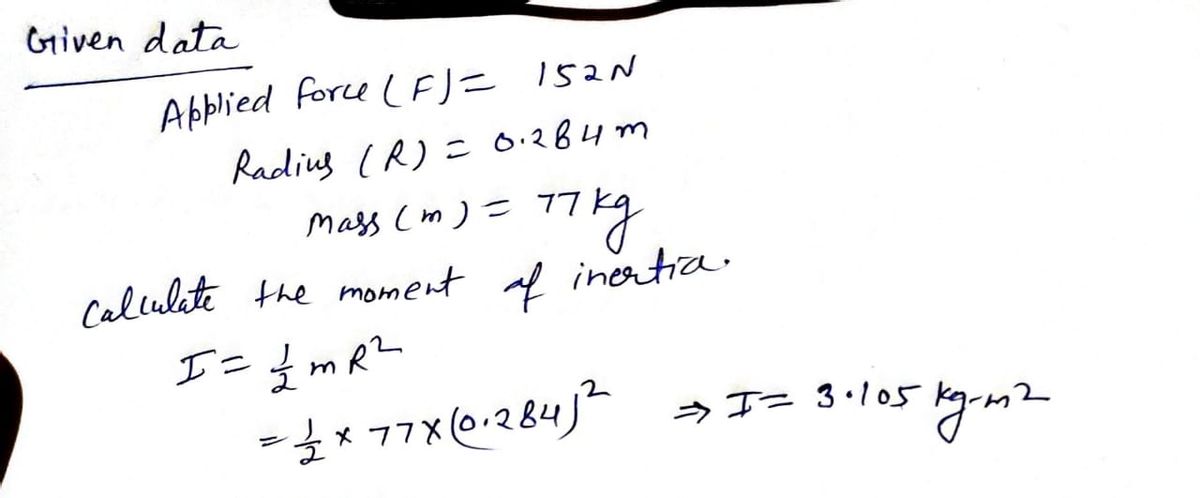 Given data
Applied force (F) = 152N
Radius (R) = 0.284 m
Mass (m) = 77 kg
Calculate the moment of inertia.
I = 1/2 m R²
= 1/2 × 77 × (0.284)² ⇒ I = 3.105 kg-m²